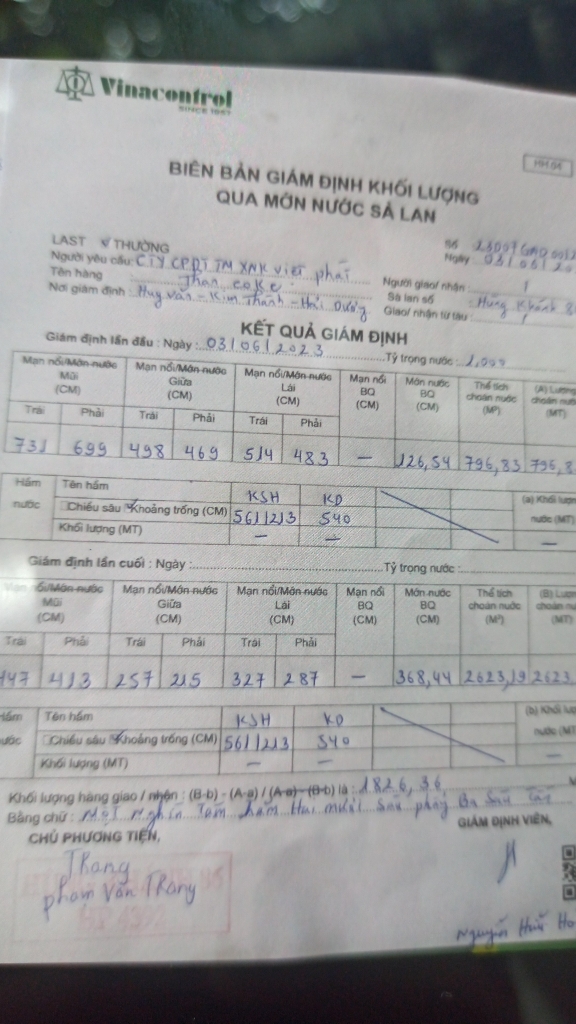 Vinacontrol
SINCE 1957
HH 04
BIÊN BẢN GIÁM ĐỊNH KHỐI LƯỢNG
QUA MỚN NƯỚC SÀ LAN
LAST THƯỜNG
Số
Ngày 03/06/20
Người yêu cầu: CTY CPĐT TM XNK Việt phát
Tên hàng Than coke
Nơi giám định: Huy Văn - Kim Thành - Hải Dương
Người giao/ nhận : /
Sà lan số : Hùng Khánh
Giao/ nhận từ tàu : /
KẾT QUẢ GIÁM ĐỊNH
Giám định lần đầu : Ngày : 03/06/2023 Tỷ trọng nước : 1,000
Mạn nổi/Món nước Mũi (CM) Mạn nổi/Món nước Giữa (CM) Mạn nổi/Món nước Lái (CM) Mạn nổi BQ (CM) Món nước BQ (CM) Thể tích choán nước (M³) (A) Lượng choán nước (MT)
Trái Phải Trái Phải Trái Phải
731 699 498 469 514 483 — 126,54 796,83 796,8
Hầm nước Tên hầm KSH KD (a) Khối lượn nước (MT)
Chiều sâu Khoảng trống (CM) 561/213 540
Khối lượng (MT) — — —
Giám định lần cuối : Ngày : Tỷ trọng nước :
Mạn nổi/Món nước Mũi (CM) Mạn nổi/Món nước Giữa (CM) Mạn nổi/Món nước Lái (CM) Mạn nổi BQ (CM) Món nước BQ (CM) Thể tích choán nước (M³) (B) Lượn choán nước (MT)
Trái Phải Trái Phải Trái Phải
447 413 257 215 327 287 — 368,44 2623,19 2623
Hầm nước Tên hầm KSH KD (b) Khối lượn nước (MT)
Chiều sâu Khoảng trống (CM) 561/213 540
Khối lượng (MT) — — —
Khối lượng hàng giao / nhận : (B-b) - (A-a) / (A-a) - (B-b) là : 1826,36
Bằng chữ : Một Nghìn Tám trăm Hai mươi Sáu phẩy Ba Sáu Tấn
CHỦ PHƯƠNG TIỆN,
GIÁM ĐỊNH VIÊN,
Thang
phạm Văn Thang
Nguyễn Hữu Ho